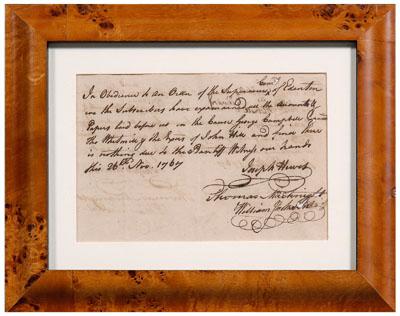 In Obedience to an Order of the Superiour Court of Edenton
we the Subscribers have examined all the accounts &
Papers laid before us in the Cause George Campbell
the of John Hill and find there
is nothing due to the Plantiff Witness our hands
this 26th Nov. 1767
Joseph Hewes
Thomas Macknight
William